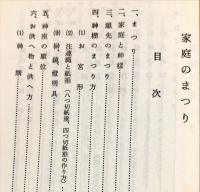 家庭のまつり
目次
一、まつり
二、家庭と神棚
三、祖先のまつり
四、神棚のまつり方
(1) お宮形
(2) 注連縄と紙垂(八つ切紙垂、四つ切紙垂の作り方)
(3) 榊、鏡、燈明具
五、神座の順位
六、お供へ物と供へ方
(1) 神饌